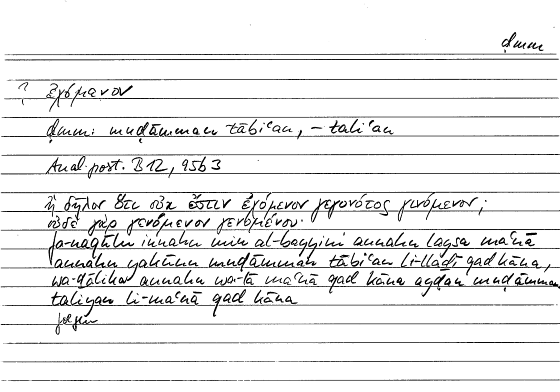 ḍmm
? ἐχόμενον
ḍmm: muḍāmman tābiʿan, – taliʿan
Anal. post. B 12, 95b3
ἢ δῆλον ὅτι οὐκ ἔστιν ἐχόμενον γεγονότος γινόμενον;
οὐδὲ γὰρ γενόμενον γενομένου.
fa-naqūlu innahu min al-bayyini annahu laysa maʿnā
annahu yakūnu muḍāmman tābiʿan li-llaḏī qad kāna,
wa-ḏālika annahu wa-lā maʿnā qad kāna ayḍan muḍāmman
taliyan li-maʿnā qad kāna